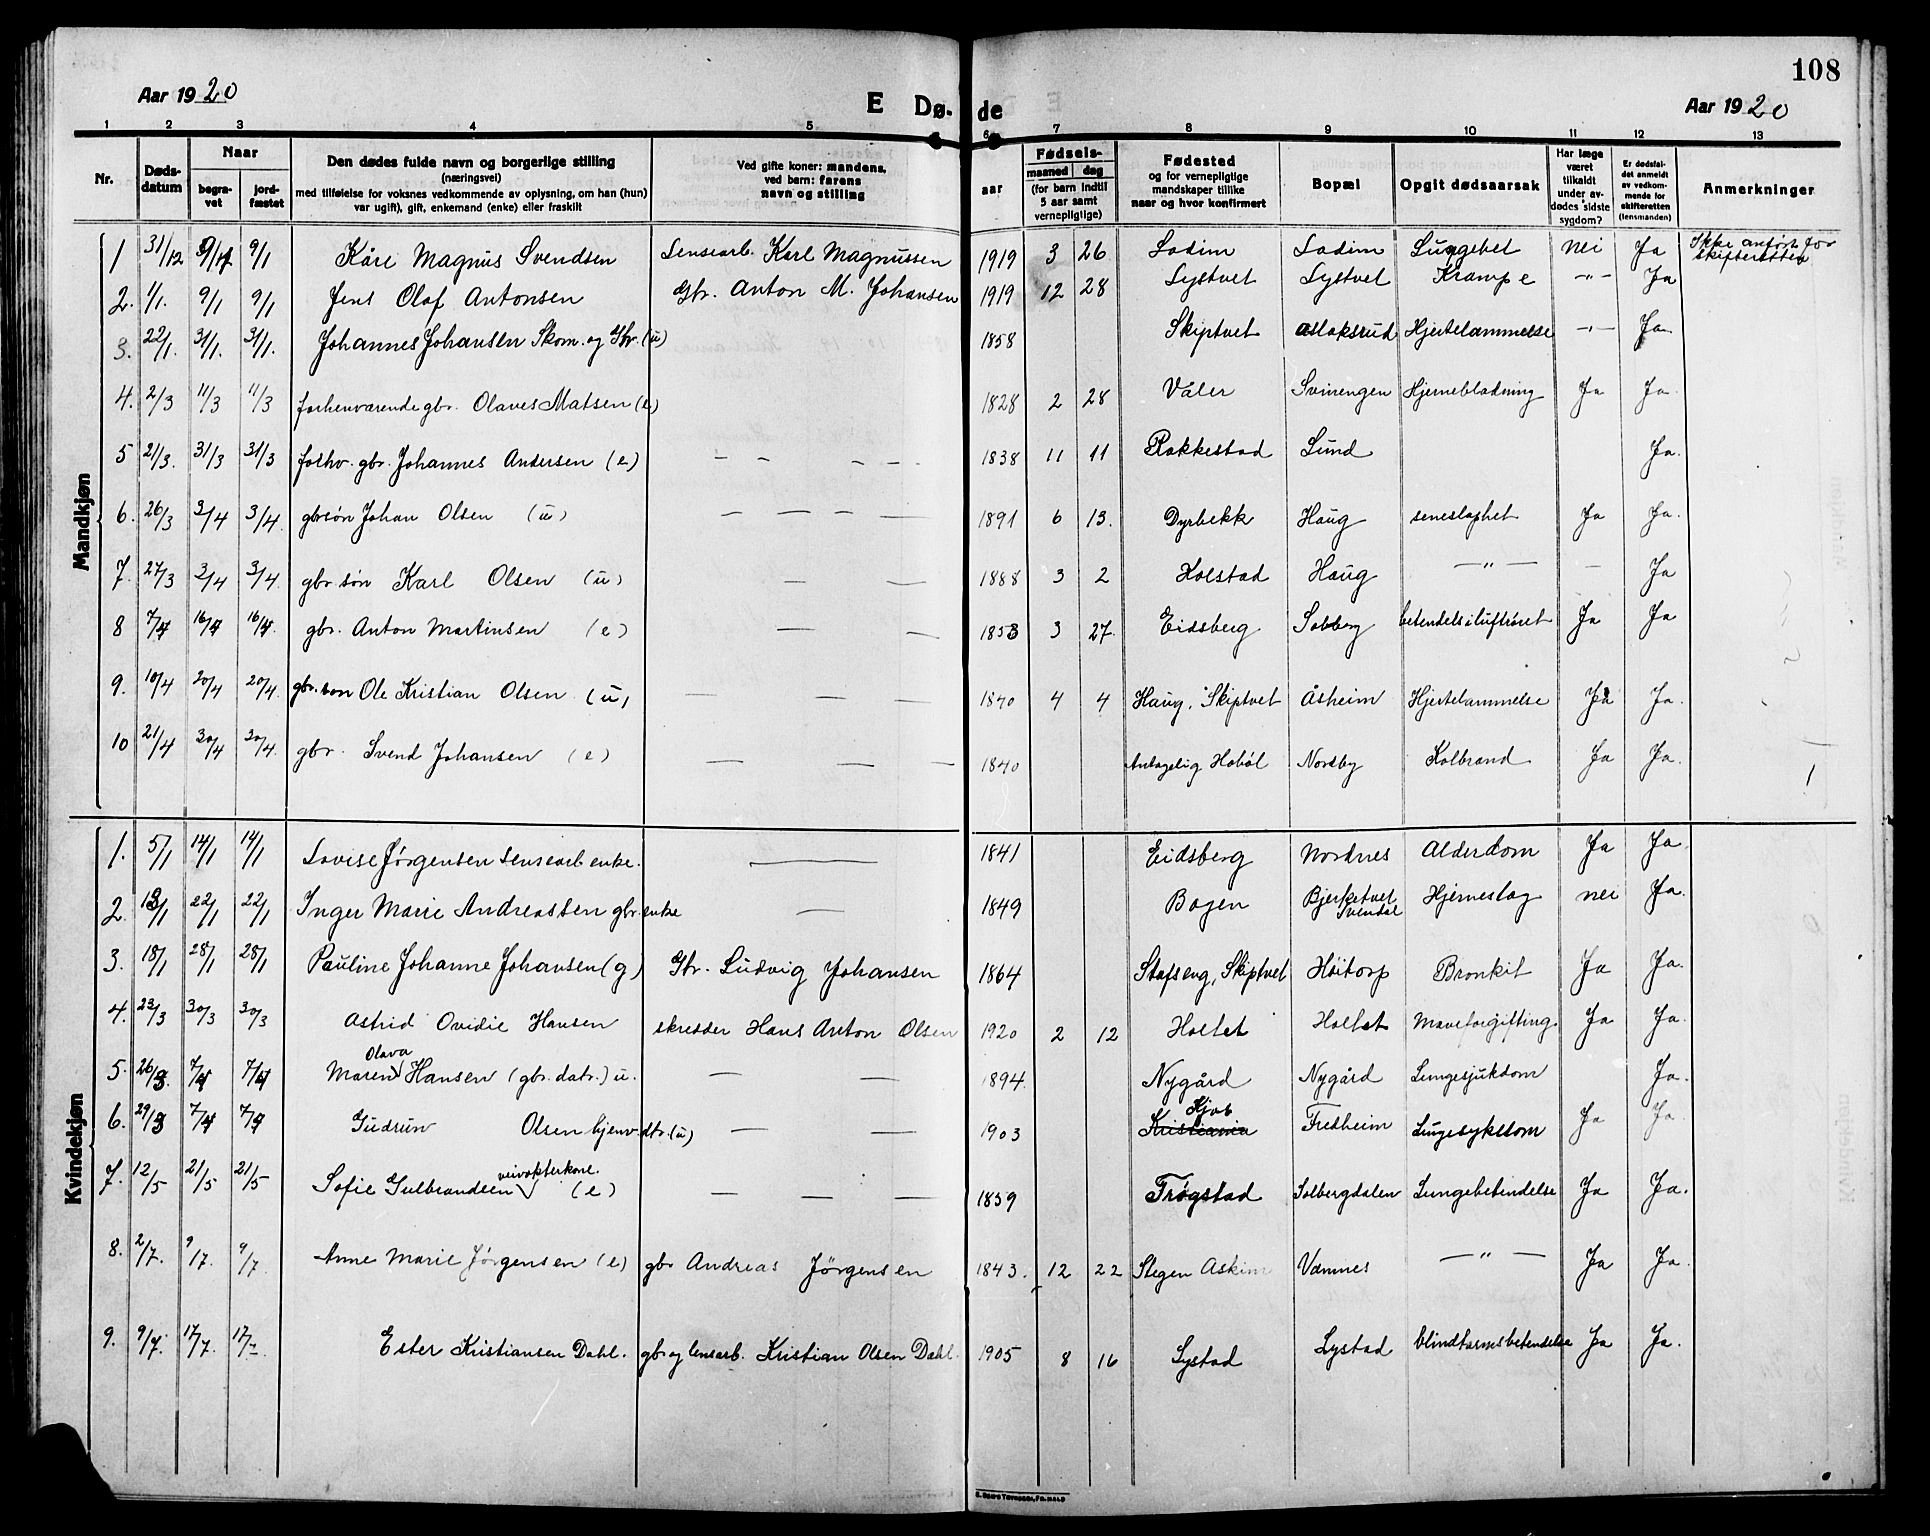 108
Aar 1920
E Dø- de
Aar 1920
1 2 3 4 5 6 7 8 9 10 11 12 13
Nr. Dødsdatum Naar begravet jordfæstet
Den dødes fulde navn og borgerlige stilling
(næringsvei)
med tilføielse for voksnes vedkommende av oplysning, om han (hun)
var ugift), gift, enkemand (enke) eller fraskilt
Ved gifte koner: mandens,
ved barn: farens
navn og stilling
Fødsels-
aar maaned dag
(for barn indtil
5 aar samt
vernepligtige)
Fødested
og for vernepligtige
mandskaper tillike
naar og hvor konfirmert
Bopæl
Opgit dødsaarsak
Har læge
været
tilkaldt
under av-
dødes sidste
sygdom?
Er dødsfal-
det anmeldt
av vedkom-
mende for
skifteretten
(lensmanden)
Anmerkninger
Mandkjøn
1 31/12 9/1 9/1 Kåre Magnus Svendsen Lensearb. Karl Magnussen 1919 3 26 Sodim Sodim nei Ja Ikke anført for skifteretten
2. 1/1. 9/1 9/1 Jens Olaf Antonsen Gbr. Anton M. Johansen 1919 12 28 Lystvet Lystvet Krampe -"- Ja
3. 22/1. 31/1. 31/1. Johannes Johansen Skom. og Gbr. (u) 1858 Skiptvet Aslaksrud Hjertelammelse -"- Ja.
4. 2/3 11/3 11/3 forhenværende gbr. Olaves Matsen (e) 1828 2 28 Våler Svinengen Hjerneblødning Ja Ja.
5 21/3. 31/3 31/3 forhv. gbr. Johannes Andersen (e) — — — — 1838 11 11 Rakkestad Lund Ja.
6. 26/3 3/4 3/4. gbr.søn Johan Olsen (u) — — — — 1891 6 13. Dyrbekk Haug seneslaphet Ja Ja.
7. 27/3 3/4 3/4. gbr. søn Karl Olsen (u) — — 1888 3 2 Kolstad Haug —"— — Ja
8 7/4 16/4 16/4. gbr. Anton Martinsen (e) — — 1853 3 27. Eidsberg Solberg betendels i luftrøret Ja Ja
9. 10/4 20/4 20/4. gbr. søn Ole Kristian Olsen (u) — — — 1840 4 4 Haug, Skiptvet Åsheim Hjertelammelse Ja Ja.
10 21/4 30/4 30/4. gbr. Svend Johansen (e) — — — 1840 Antagelig Hobøl Nordby Kolbrand Ja Ja.
Kvindekjøn
1. 5/1 14/1 14/1 Lovise Jørgensen Lensearb enke. — 1841 Eidsberg Nordnes Alderdom Ja Ja.
2. 13/1 22/1 22/1 Inger Marie Andreassen gbr. enke — 1849 Bogen Bjerketvet Svendal Hjerneslag nei Ja.
3. 18/1 28/1 28/1 Pauline Johanne Johansen (g) Gbr. Ludvig Johansen 1864 Stafseng, Skiptvet Høitorp Bronkit Ja Ja.
4. 23/3 30/3 30/3 Astrid Ovidie Hansen skredder Hans Anton Olsen 1920 2 12 Holtet Holtet Maveforgiftning Ja Ja.
5. 26/3. 7/4 7/4 Maren Olava Hansen (gbr. datr.) u. — — 1894. Nygård Nygård Lungesjukdom Ja.
6. 29/3 7/4 7/4 Gudrun Olsen hjemv. dtr. (u) — — 1903 Kristiania Fredheim Lungesykdom Ja Ja.
7. 12/5 21/5 21/5 Sofie Gulbrandsen veivokterkone. (e) — — — 1859 Trøgstad Solbergdalen Lungebetendelse Ja Ja.
8. 2/7. 9/7. 9/7 Anne Marie Jørgensen (e) gbr Andreas Jørgensen 1843. 12 22 Stegen Askim Vamnes —"— Ja Ja.
9. 9/7. 17/7. 17/7 Ester Kristiansen Dahl. gbr. og lensarb. Kristian Olsen Dahl. 1905 8 16 Lystad Lystad blindtarmsbetendelse Ja Ja.